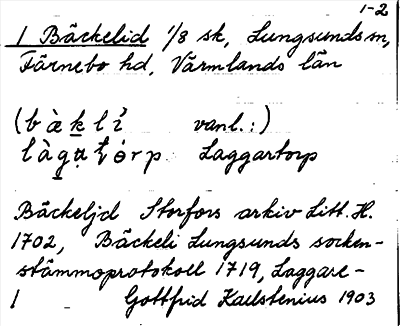 1-2
1 Bäckelid 1/8 sk, Lungsunds sn,
Färnebo hd, Värmlands län
(b à̈ k l ı̉ vanl.:)
l à g a t ó r p Laggartorp
Bäckeljd Storfors arkiv Litt. H.
1702, Bäckeli Lungsunds socken-
stämmoprotokoll 1719, Laggare-
1 Gottfrid Kallstenius 1903